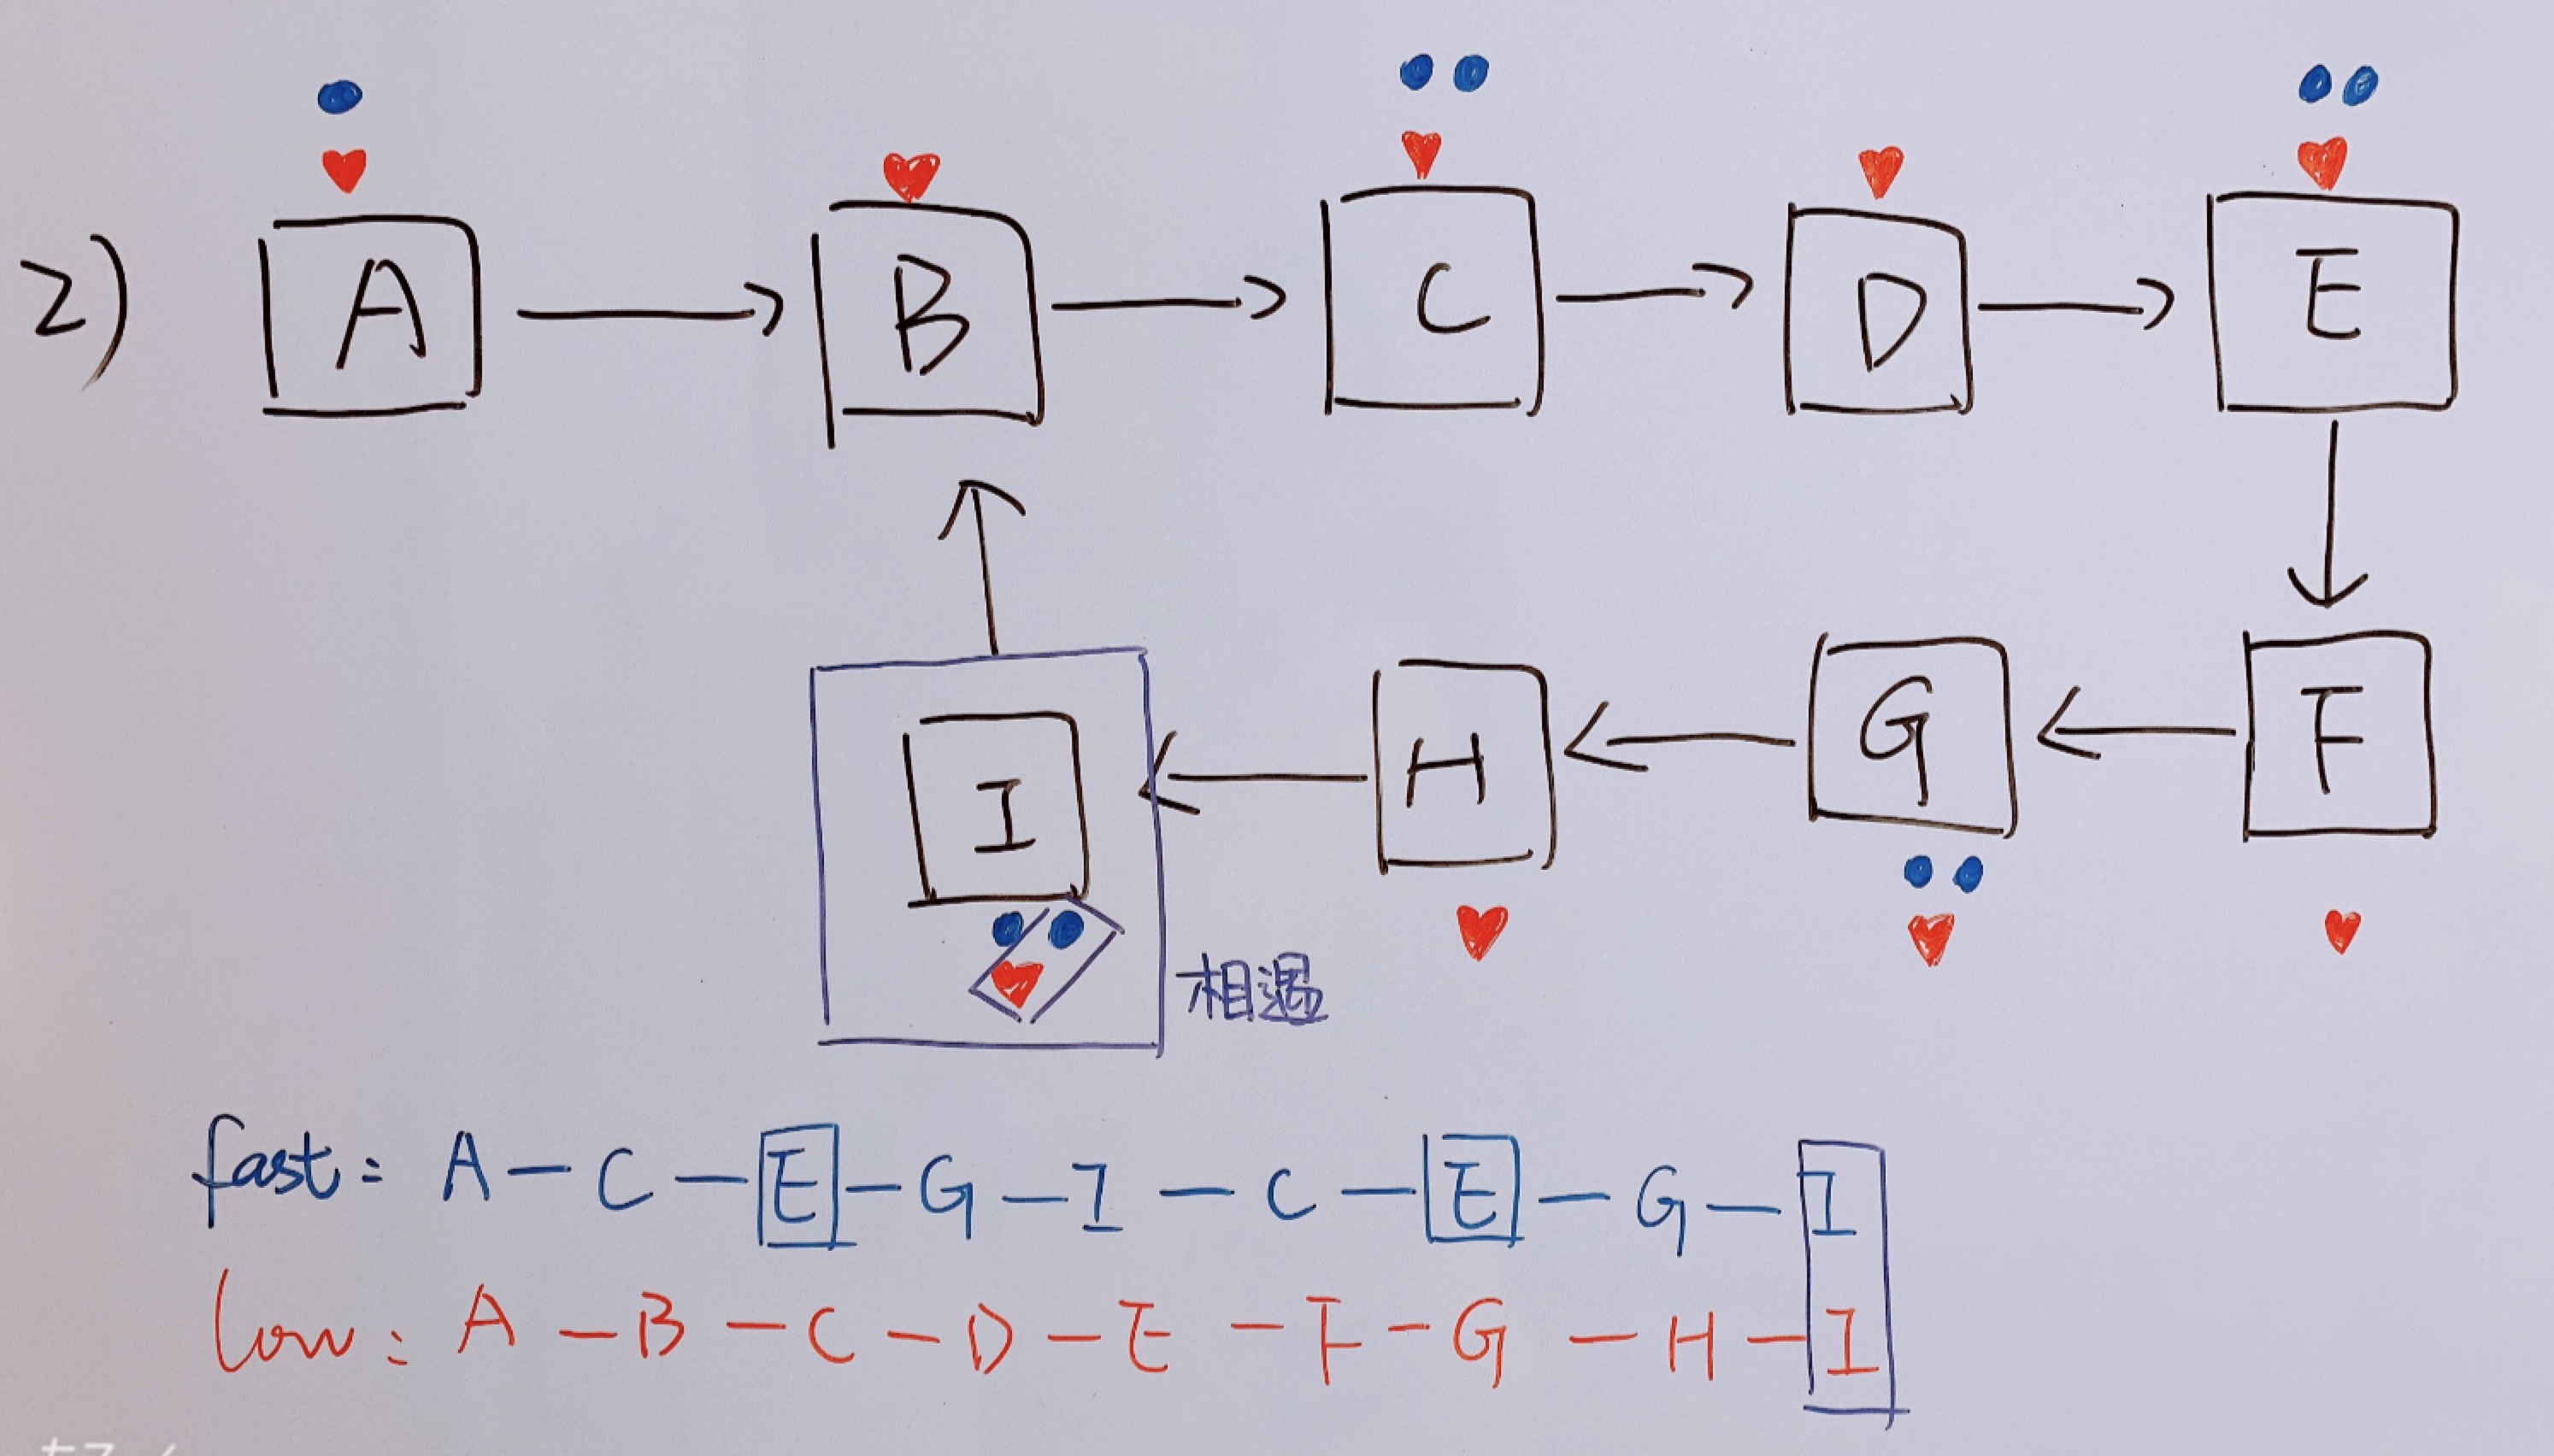 2) A → B → C → D → E
I ← H ← G ← F
相遇
fast: A - C - E - G - I - C - E - G - I
low: A - B - C - D - E - F - G - H - I